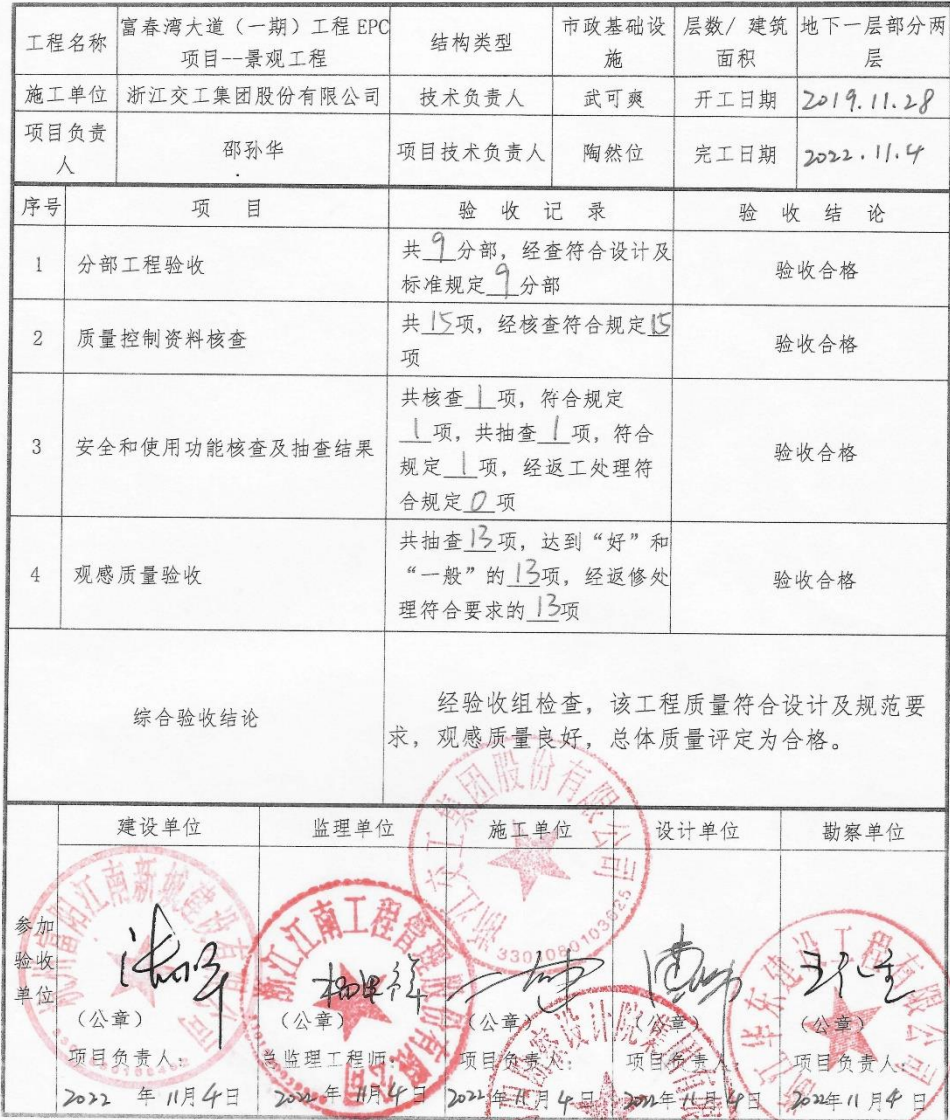 工程名称
富春湾大道（一期）工程 EPC
项目--景观工程
结构类型
市政基础设
施
层数/ 建筑
面积
地下一层部分两
层
施工单位
浙江交工集团股份有限公司
技术负责人
武可爽
开工日期
2019.11.28
项目负责
人
邵孙华
项目技术负责人
陶然位
完工日期
2022.11.4
序号
项 目
验 收 记 录
验 收 结 论
1
分部工程验收
共9分部，经查符合设计及
标准规定9分部
验收合格
2
质量控制资料核查
共15项，经核查符合规定15
项
验收合格
3
安全和使用功能核查及抽查结果
共核查1项，符合规定
1项，共抽查1项，符合
规定1项，经返工处理符
合规定0项
验收合格
4
观感质量验收
共抽查13项，达到“好”和
“一般”的13项，经返修处
理符合要求的13项
验收合格
综合验收结论
经验收组检查，该工程质量符合设计及规范要
求，观感质量良好，总体质量评定为合格。
参加
验收
单位
建设单位
（公章）
项目负责人：
2022 年 11月4日
监理单位
浙江江南工程管理股份有限公司
（公章）
总监理工程师：
2022 年 11月4日
施工单位
浙江交工集团股份有限公司
（公章）
项目负责人：
2022年11月4日
设计单位
（公章）
项目负责人：
2022年11月4日
勘察单位
（公章）
项目负责人：
2022年11月4日